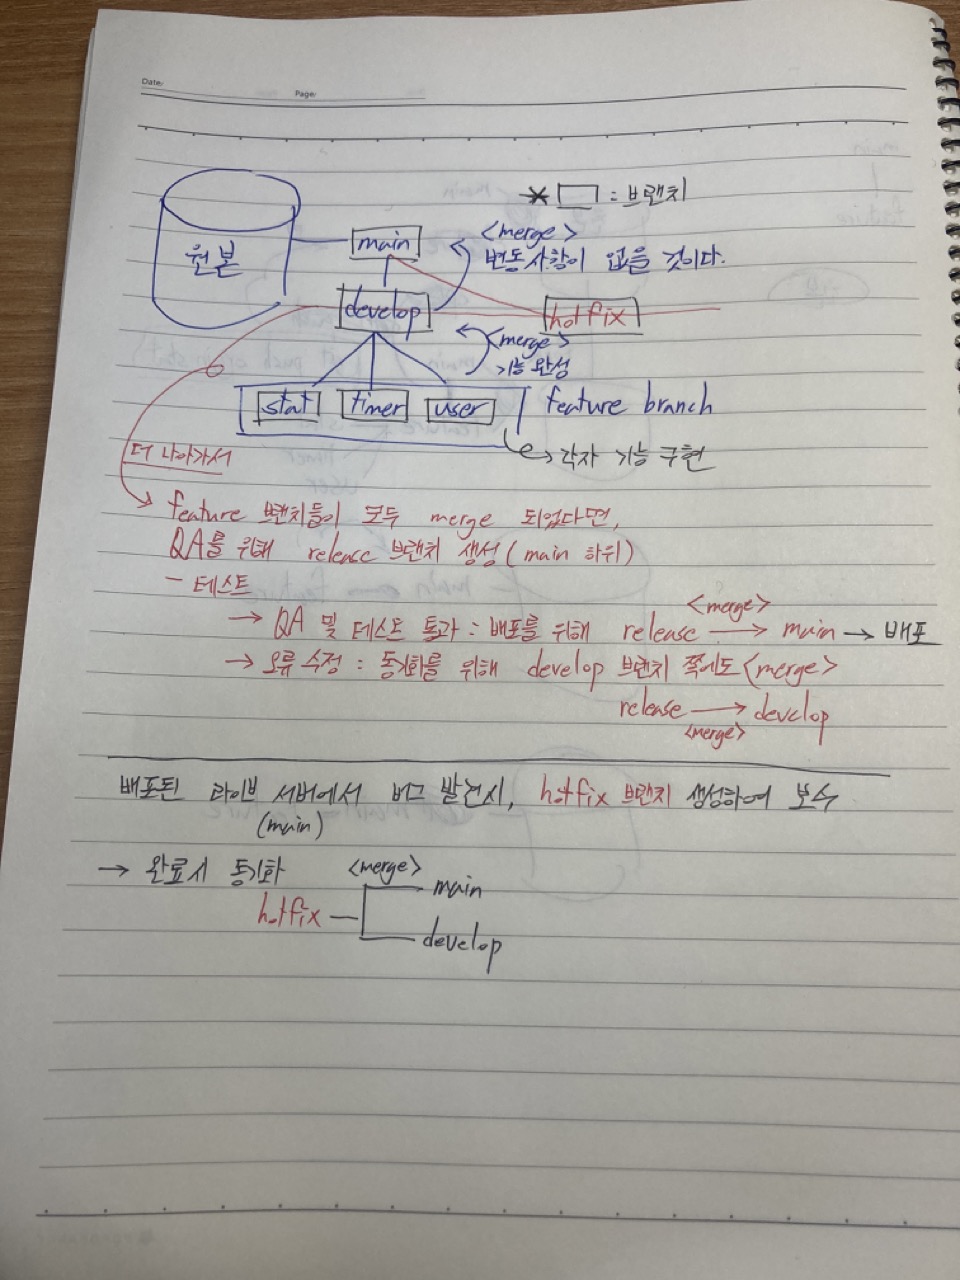 Date:
Page:
* □ : 브랜치
원본
main
<merge>
변동사항이 없을 것이다.
develop
hotfix
<merge>
기능 완성
stat timer user
feature branch
→ 각자 기능 구현
더 나아가서
→ feature 브랜치들이 모두 merge 되었다면,
QA를 위해 release 브랜치 생성 (main 하위)
- 테스트
<merge>
→ QA 및 테스트 통과 : 배포를 위해 release → main → 배포
→ 오류 수정 : 동기화를 위해 develop 브랜치 쪽에도 <merge>
release → develop
<merge>
배포된 라이브 서버에서 버그 발견시, hotfix 브랜치 생성하여 보수
(main)
→ 완료시 동기화 <merge>
main
hotfix
develop